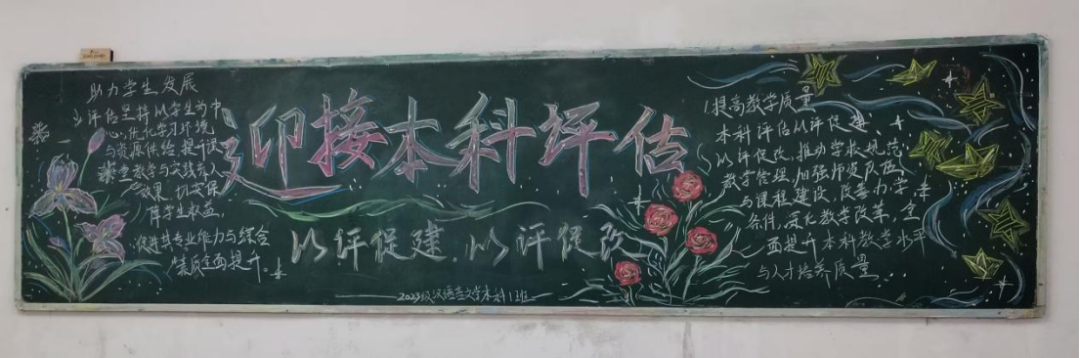 助力学生发展
评估坚持以学生为中
心,优化学习环境
与资源供给,提升课
堂教学与实践育人
效果,切实保
障学生权益,
促进其专业能力与综合
素质全面提升。
迎接本科评估
以评促建,以评促改
2023级汉语言文学本科1班
1提高教学质量
本科评估以评促建、
以评促改,推动学校规范
教学管理,加强师资队伍
与课程建设,改善办学
条件,深化教学改革,全
面提升本科教学水平
与人才培养质量